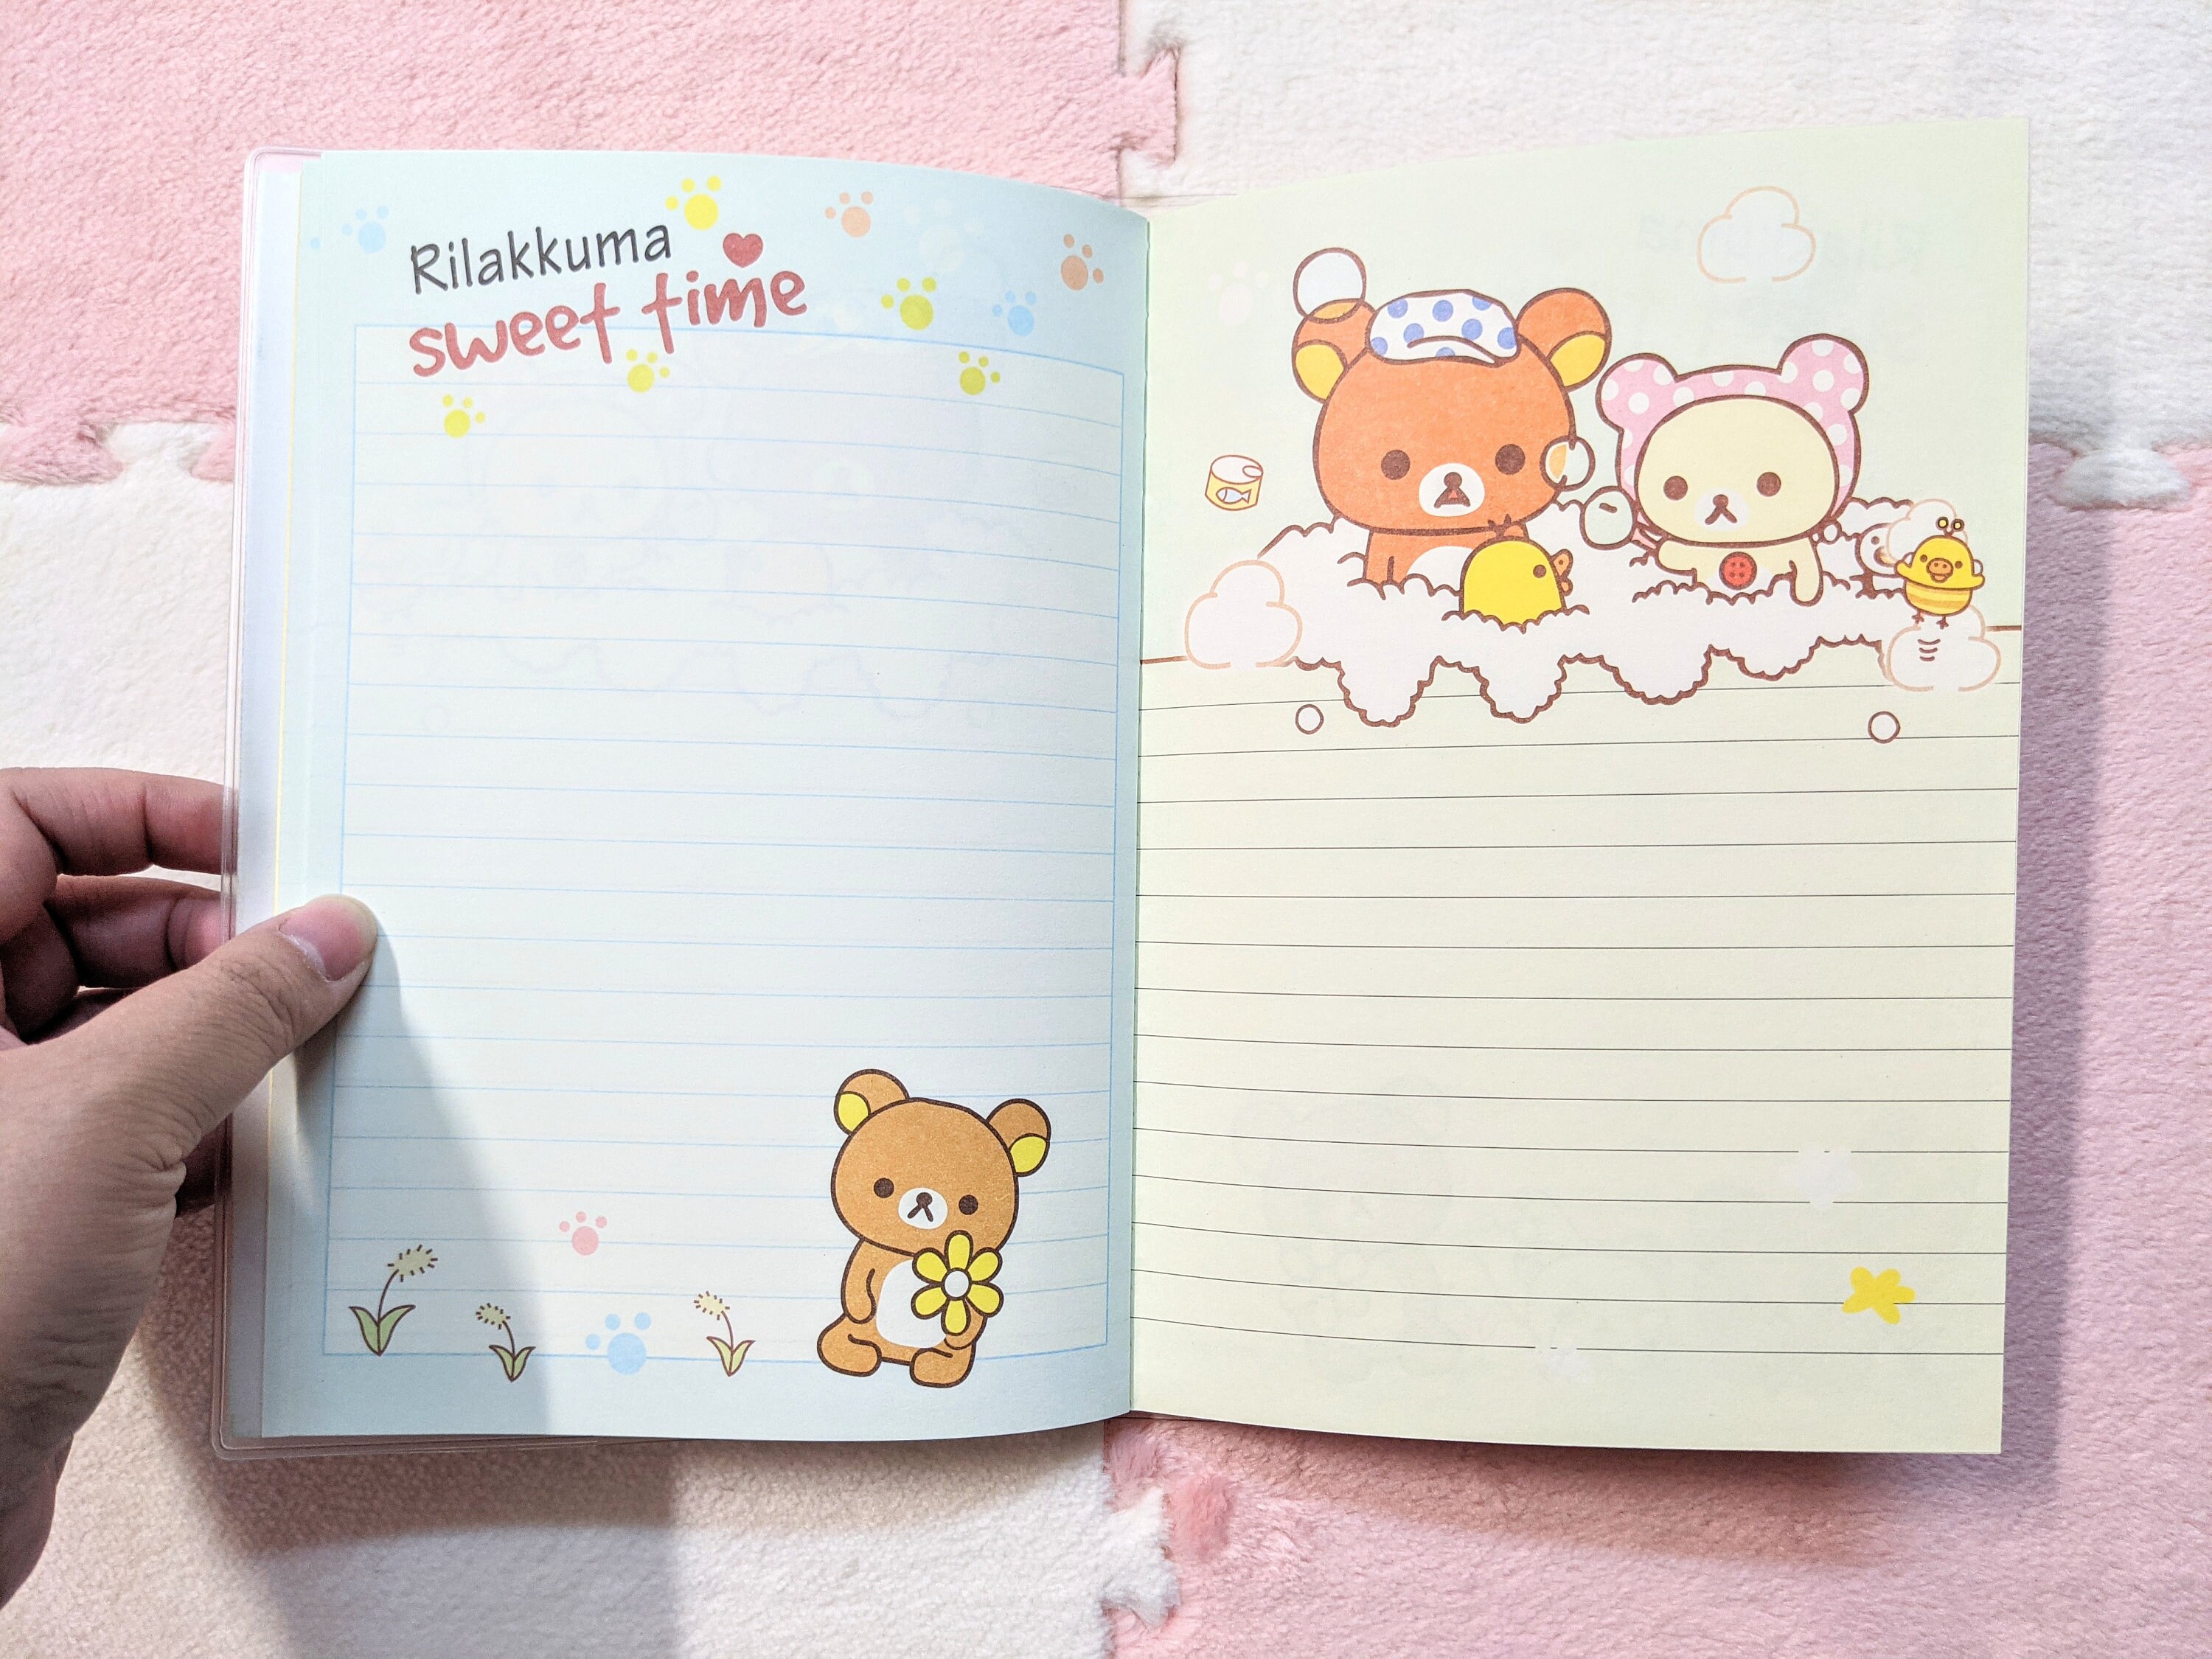 Rilakkuma
sweet time